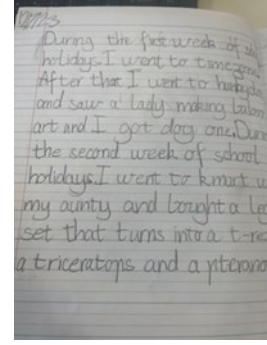 During the first week of
holidays. I went to timezone.
After that I went to
and saw a lady making
art and I got dog one.
the second week of school
holidays. I went to kmart
my aunty and bought a
set that turns into a
a triceratops and a